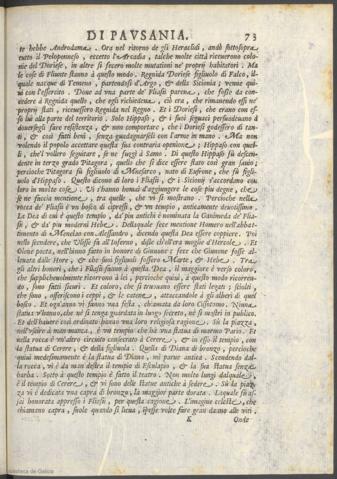 DI PAVSANIA. 73
te hebbe Androdama. Ora nel ritorno de gli Heraclidi, andò sottosopra
tutto il Peloponneso, eccetto l'Arcadia, talche molte città ricuerono colo-
nie del Doriese, in altre si fecero molte mutationi ne' proprij habitatori. Ma
le cose di Fliunte stanno à questo modo. Regnida Doriese figliuolo di Falco, il-
quale nacque di Temeno, partendosi d'Argo, & della Sicionia; venne qui-
ui con l'essercito. Doue ad vna parte de Fliasij parue, che fosse da con-
cedere à Regnida quello, che egli richiedeua, ciò era, che rimanendo essi ne'
proprij stati, riceuessero Regnida nel Regno. Et i Doriesi, che erano con es-
so lui alla parte del territorio. Solo Hippaso, & i suoi seguaci persuadeuano à
douersegli fare resistenza, & non comportare, che i Doriesi godessero di tan-
ti, & così fatti beni, senza guadagnarseli con l'arme in mano. Ma non
volendo il popolo accettare questa sua contraria openione; Hippaso con quel-
li, che'l vollero seguitare, se ne fuggì à Samo. Di questo Hippaso fù descen-
dente in terzo grado Pitagora, quello che si dice essere stato così gran sauio;
percioche Pitagora fù figliuolo di Mnesarco, nato di Eufrone, che fù figli-
uolo d'Hippaso. Questo dicono di loro i Fliasij, & i Sicionij s'accordano con
loro in molte cose. Vi s'hanno homai d'aggiungere le cose piu degne, che
se ne faccia mentione, tra quelle, che vi si mostrano. Percioche nella
rocca de' Fliasij è vn bosco di cipressi, & vn tempio, anticamente deuotissimo.
La Dea di cui è questo tempio, da' piu antichi è nominata la Ganimeda de' Flia-
sij, & da' piu moderni Hebe. Dellaquale fece mentione Homero nell'abbat-
timento di Menelao con Alessandro, dicendo questa Dea essere coppiere. Poi
nello scendere, che Vlisse fà all'Inferno, disse ch'ell'era moglie d'Hercole. Et
Olene poeta, nell'hinno fatto in honore di Giunone; fece che Giunone fosse al-
leuata dalle Hore, & che suoi figliuoli fossero Marte, & Hebe. Tra
gli altri honori, che i Fliasij fanno à questa Dea, il maggiore è verso coloro,
che supplicheuolmente ricorrono à lei, percioche quiui, à questo modo ricorren-
do, sono fatti sicuri. Et coloro, che si truouano essere stati legati; sciolti,
che sono, offeriscono i ceppi, & le catene, attaccandole à gli alberi di quel
bosco. Et ogni anno vi fanno vna festa, chiamata da loro Cissotomo. Niuna
statua v'hanno, che nè si tenga guardata in luogo secreto, nè si mostri in publico.
Et dell'hauere così ordinato hanno vna loro religiosa ragione. Sù la piazza,
nell'vscire à man manca, è vn tempio che hà vna statua di marmo Pario. Et
nella rocca è vn'altro circoito consecrato à Cerere, & in esso il tempio, con
la statua di Cerere, & della figliuola. Quella di Diana di bronzo, percioche
quiui medesimamente è la statua di Diana, mi parue antica. Scendendo dal-
la rocca, vi è da man destra il tempio di Esculapio, & la sua statua senza
barba. Sotto à questo tempio è fatto il teatro. Non molto lungi dalquale,
è il tempio di Cerere, & vi sono delle statue antiche à sedere. Sù la piaz-
za vi è dedicata vna capra di bronzo, la maggior parte dorata. Laquale fù as-
sai honorata appresso i Fliasij, per questa cagione. L'imagine celeste, che
chiamano capra, suole quando si lieua, spesse volte fare gran danno alle viti.
K Onde
Biblioteca de Galicia